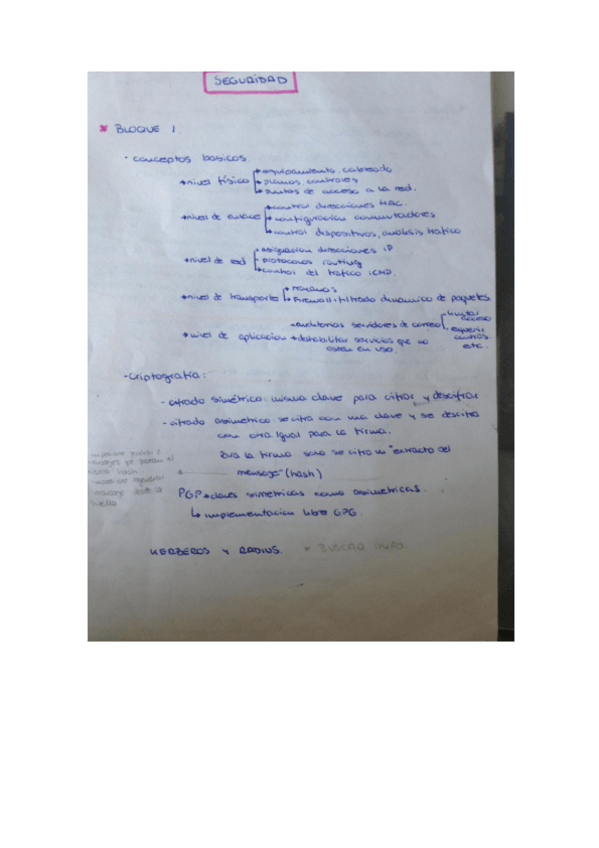 SEGURIDAD
* BLOQUE 1.
· conceptos basicos.
equipamiento, cableado
nivel físico planos, controles
puntos de acceso a la red.
control direcciones MAC.
nivel de enlace configuración conmutadores
control dispositivos, análisis tráfico
asignación direcciones IP
nivel de red protocolos routing
control del tráfico ICMP.
troyanos
nivel de transporte Firewall: filtrado dinamico de paquetes
auditorias servidores de correo limitar acceso
nivel de aplicacion deshabilitar servicios que no
esten en uso. etc.
-Criptografía:
- cifrado simétrico: misma clave para cifrar y descifrar
- cifrado asimetrico: se cifra con una clave y se descifra
con otra. Igual para la firma.
Para la firma solo se cifra un "extracto del
mensaje" (hash)
PGP claves simetricas como asimetricas.
implementacion libre GPG.
KERBEROS Y RADIUS. * BUSCAR INFO.